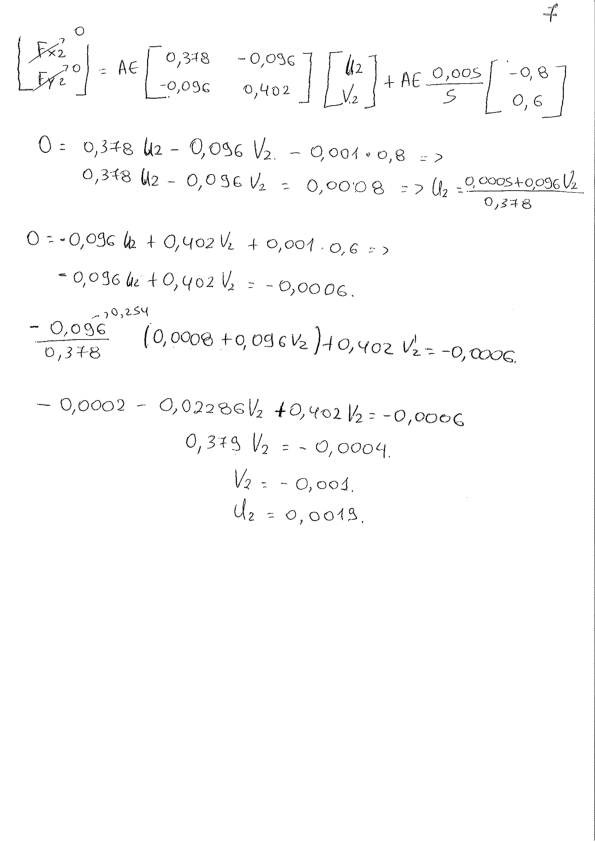 7
[Fx2→0 Fy2→0] = AE [0,378 -0,096 -0,096 0,402] [U2 V2] + AE 0,005/5 [-0,8 0,6]
0 = 0,378 U2 - 0,096 V2. - 0,001 · 0,8 =>
0,378 U2 - 0,096 V2 = 0,0008 => U2 = 0,0005+0,096V2/0,378
0 = -0,096 U2 + 0,402 V2 + 0,001 · 0,6 =>
- 0,096 U2 + 0,402 V2 = -0,0006.
→0,254
- 0,096/0,378 (0,0008 + 0,096 V2) + 0,402 V2 = -0,0006.
- 0,0002 - 0,02286 V2 + 0,402 V2 = -0,0006
0,379 V2 = - 0,0004.
V2 = - 0,001.
U2 = 0,0019.